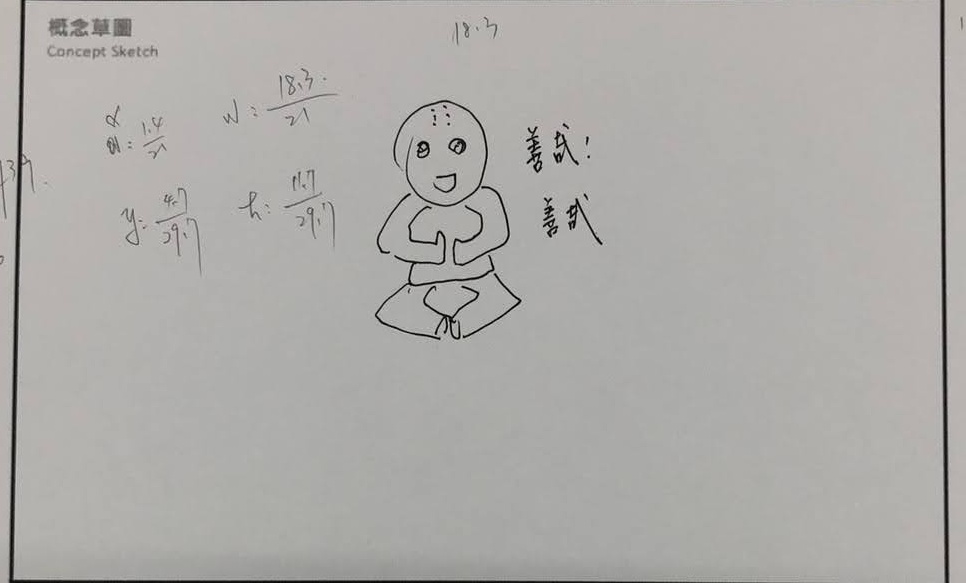 概念草圖
Concept Sketch
18.3
x: 1.4/21
w: 18.3/21
y: 4.7/29.7
h: 11.7/29.7
善哉!
善哉